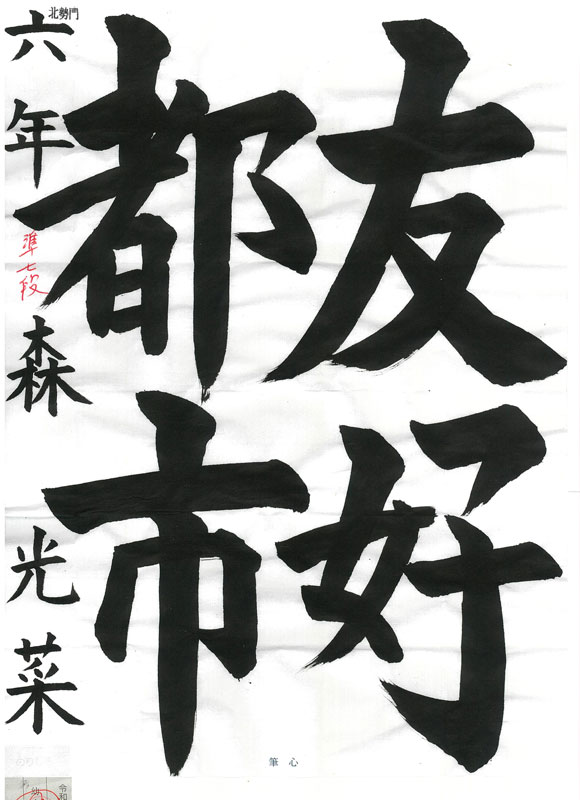 友好
都市
北勢門
六年 森 光菜
準七段
筆心
令和